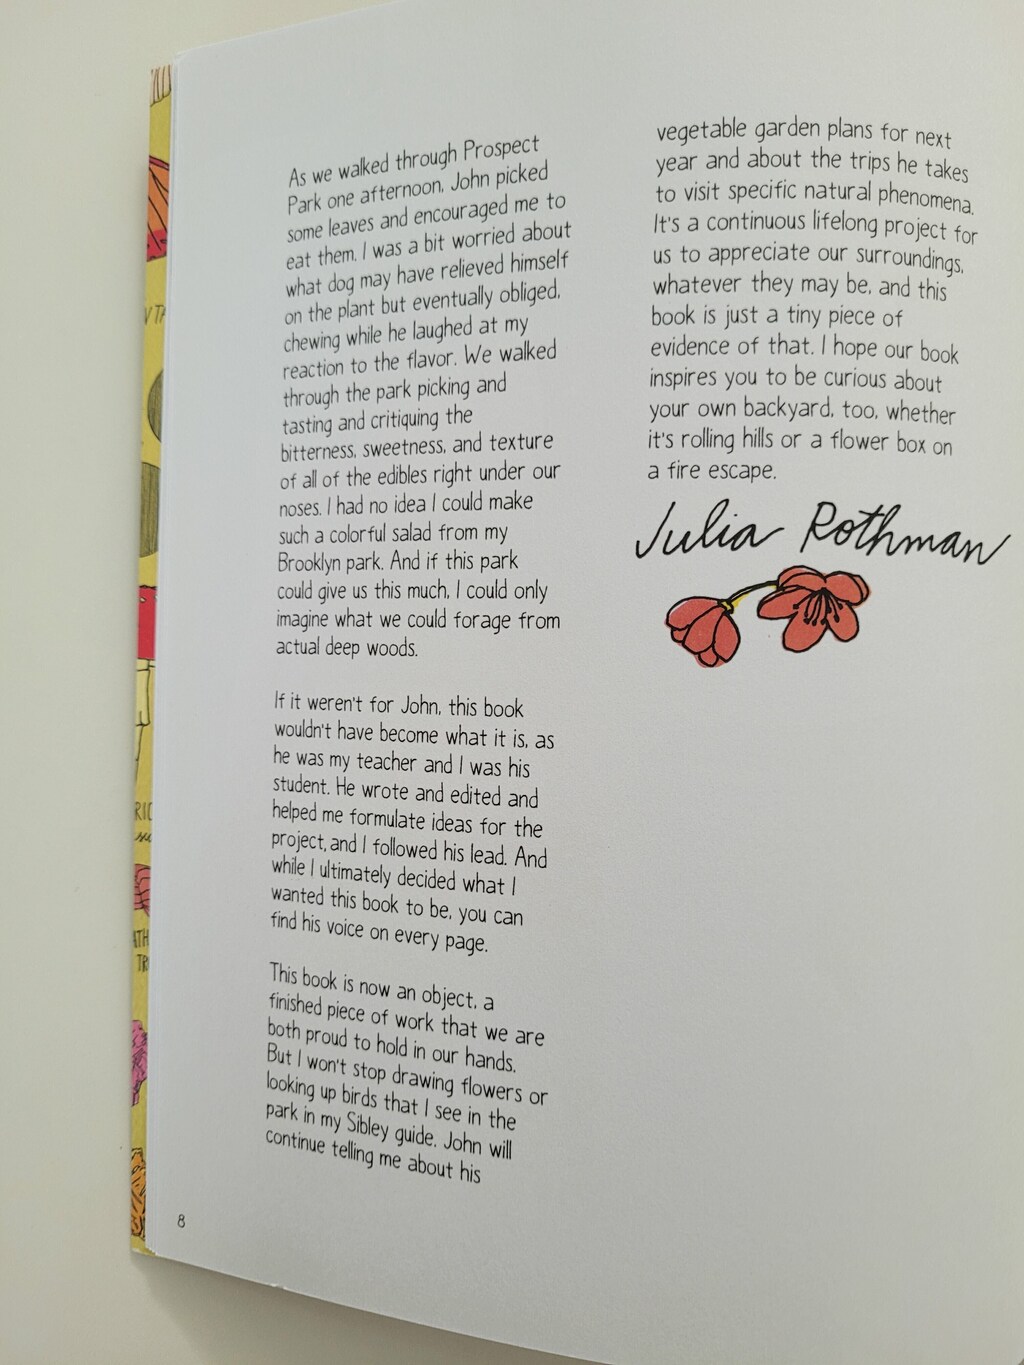 As we walked through Prospect
Park one afternoon, John picked
some leaves and encouraged me to
eat them. I was a bit worried about
what dog may have relieved himself
on the plant but eventually obliged,
chewing while he laughed at my
reaction to the flavor. We walked
through the park picking and
tasting and critiquing the
bitterness, sweetness, and texture
of all of the edibles right under our
noses. I had no idea I could make
such a colorful salad from my
Brooklyn park. And if this park
could give us this much, I could only
imagine what we could forage from
actual deep woods.
If it weren't for John, this book
wouldn't have become what it is, as
he was my teacher and I was his
student. He wrote and edited and
helped me formulate ideas for the
project, and I followed his lead. And
while I ultimately decided what I
wanted this book to be, you can
find his voice on every page.
This book is now an object, a
finished piece of work that we are
both proud to hold in our hands.
But I won't stop drawing flowers or
looking up birds that I see in the
park in my Sibley guide. John will
continue telling me about his
vegetable garden plans for next
year and about the trips he takes
to visit specific natural phenomena.
It's a continuous lifelong project for
us to appreciate our surroundings,
whatever they may be, and this
book is just a tiny piece of
evidence of that. I hope our book
inspires you to be curious about
your own backyard, too, whether
it's rolling hills or a flower box on
a fire escape.
Julia Rothman
8